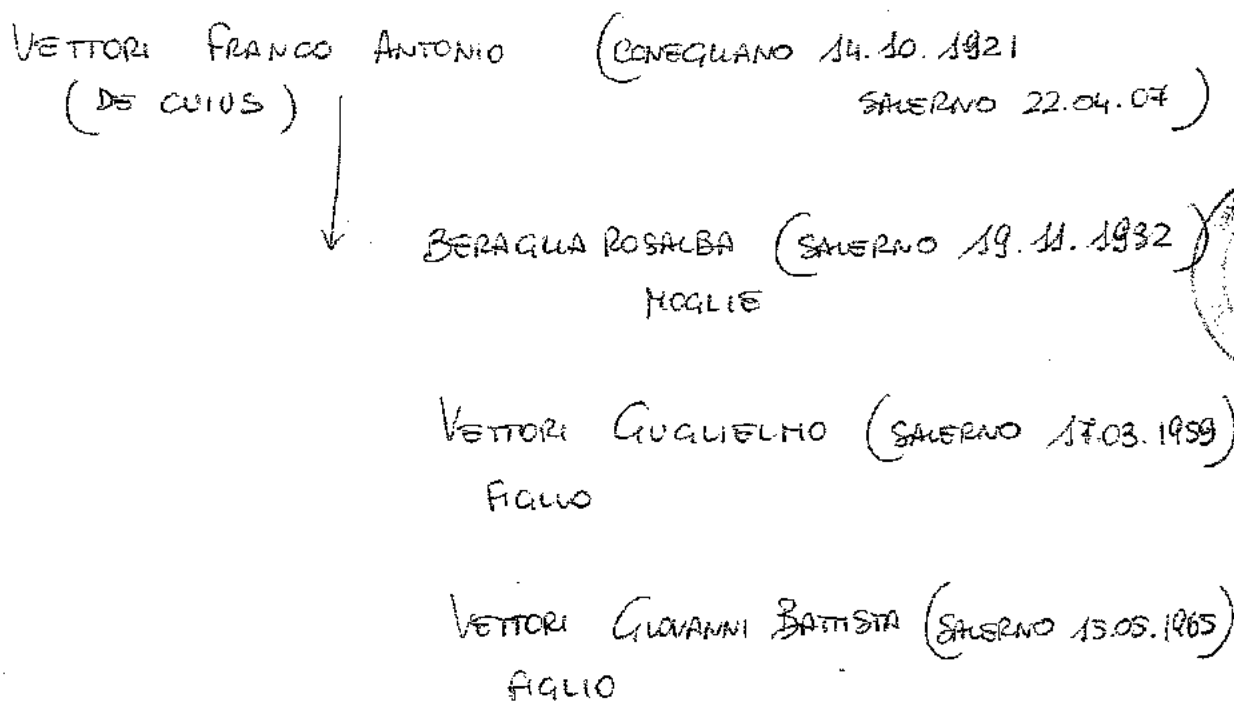 VETTORI FRANCO ANTONIO (CONEGLIANO 14.10.1921
(DE CUIUS) SALERNO 22.04.07)
BERAGLIA ROSALBA (SALERNO 19.11.1932)
MOGLIE
VETTORI GUGLIELMO (SALERNO 17.03.1959)
FIGLIO
VETTORI GIOVANNI BATTISTA (SALERNO 15.05.1965)
FIGLIO